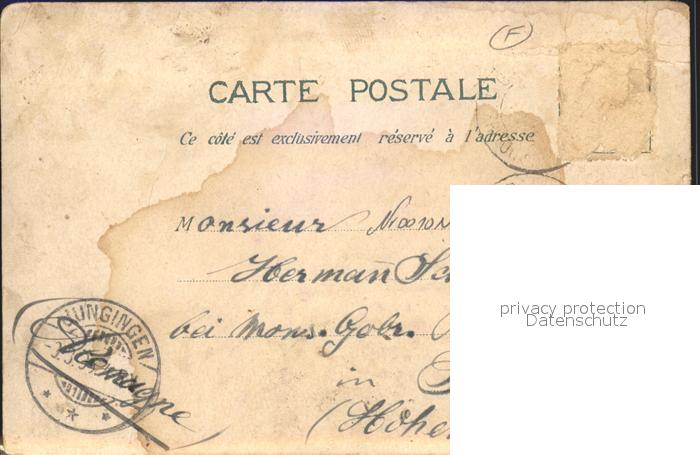 F
CARTE POSTALE
Ce côté est exclusivement réservé à l'adresse
Monsieur
Hermann
bei Mons. Gebr.
in
(Hohe
JUNGINGEN
Allemagne
privacy protection
Datenschutz